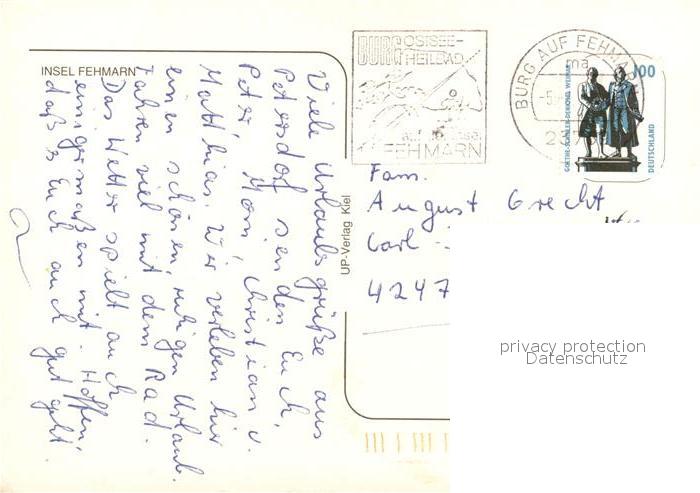 INSEL FEHMARN
Viele Urlaubsgrüße aus
Petersdorf senden Euch,
Peter, Moni, Christian u.
Matthias. Wir verleben hier
einen schönen, ruhigen Urlaub.
Fahren viel mit dem Rad.
Das Wetter spielt auch
einigermaßen mit. Hoffen,
daß es Euch auch gut geht.
UP-Verlag Kiel
BURG OSTSEE-
HEILBAD
auf
FEHMARN
BURG AUF FEHMA
ma
-5.
2
GOETHE-SCHILLER-DENKMAL WEIMAR
100
DEUTSCHLAND
Fam.
August Grecht
Carl -
4247
privacy protection
Datenschutz